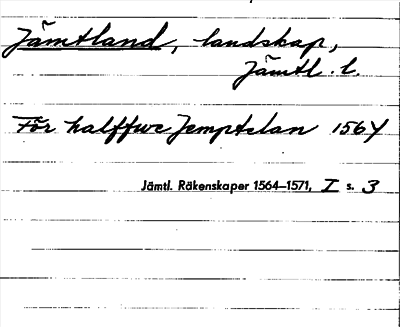 Jämtland, landskap,
Jämtl. l.
För halffwe Jemptelan 1564
Jämtl. Räkenskaper 1564–1571, I s. 3